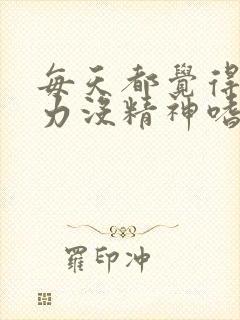 每天都覺得
力沒精神嗜
羅印冲